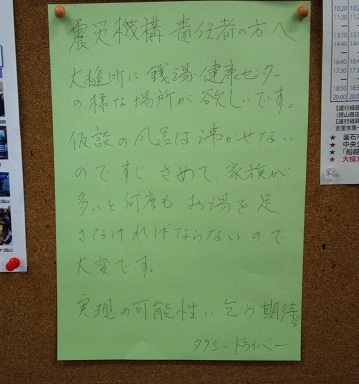 震災機構 責任者の方へ
大槌町に銭湯・健康センター
の様な場所が欲しいです。
仮設の風呂は沸かせない
のですぐさめて、家族が
多いと何度もお湯を足
さなければならないので
大変です。
実現の可能性い乞う期待。
タクシードライバー
10:20
11:30
12:30
13:30